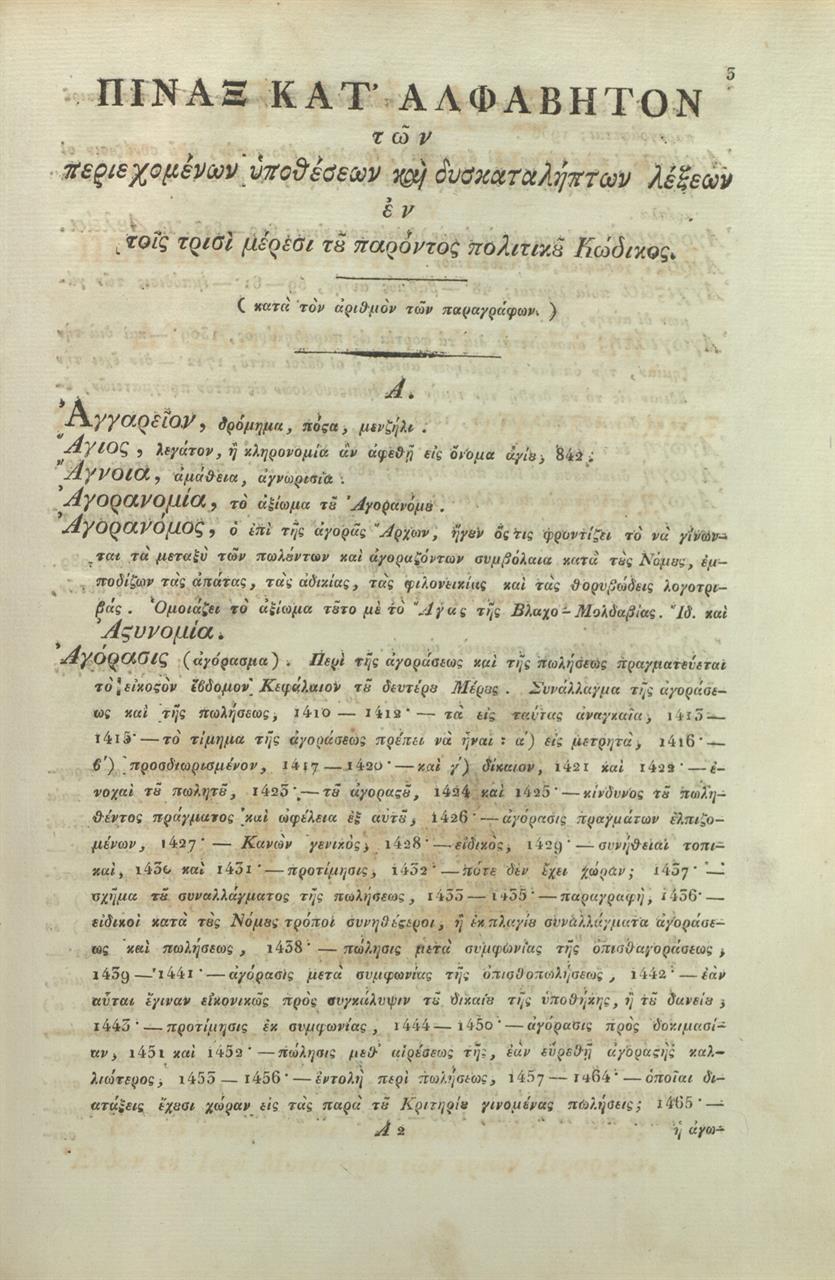 3
ΠΙΝΑΞ ΚΑΤ' ΑΛΦΑΒΗΤΟΝ
τῶν
περιεχομένων ὑποθέσεων καὶ δυσκαταλήπτων λέξεων
ἐν
τοῖς τρισὶ μέρεσι τȣ͂ παρόντος πολιτικȣ͂ Κώδικος.
( κατὰ τὸν ἀριθμὸν τῶν παραγράφων. )
Α.
Ἀγγαρεῖον, δρόμημα, πόςα, μενζήλι.
Ἅγιος, λεγάτον, ἢ κληρονομία ἂν ἀφεθῇ εἰς ὄνομα ἁγίȣ, 842;
Ἄγνοια, ἀμάθεια, ἀγνωρισία.
Ἀγορανομία, τὸ ἀξίωμα τȣ͂ Ἀγορανόμȣ.
Ἀγορανόμος, ὁ ἐπὶ τῆς ἀγορᾶς Ἄρχων, ἤγȣν ὅςτις φροντίζει τὸ νὰ γίνων-
ται τὰ μεταξὺ τῶν πωλȣ́ντων καὶ ἀγοραζόντων συμβόλαια κατὰ τȣ̀ς Νόμȣς, ἐμ-
ποδίζων τὰς ἀπάτας, τὰς ἀδικίας, τὰς φιλονεικίας καὶ τὰς θορυβώδεις λογοτρι-
βάς. Ὁμοιάζει τὸ ἀξίωμα τȣ͂το μὲ τὸ Ἀγᾶς τῆς Βλαχο-Μολδαβίας. Ἰδ. καὶ
Ἀςυνομία.
Ἀγόρασις (ἀγόρασμα). Περὶ τῆς ἀγοράσεως καὶ τῆς πωλήσεως πραγματεύεται
τὸ εἰκοςὸν ἕβδομον Κεφάλαιον τȣ͂ δευτέρȣ Μέρȣς. Συνάλλαγμα τῆς ἀγοράσε-
ως καὶ τῆς πωλήσεως, 1410 — 1412· — τὰ εἰς ταύτας ἀναγκαῖα, 1413—
1415· — τὸ τίμημα τῆς ἀγοράσεως πρέπει νὰ ἦναι: α') εἰς μετρητὰ, 1416· —
β') προσδιωρισμένον, 1417 — 1420· — καὶ γ') δίκαιον, 1421 καὶ 1422· — ἐ-
νοχαὶ τȣ͂ πωλητȣ͂, 1423· — τȣ͂ ἀγοραςȣ͂, 1424 καὶ 1425· — κίνδυνος τȣ͂ πωλη-
θέντος πράγματος καὶ ὠφέλεια ἐξ αὐτȣ͂, 1426· — ἀγόρασις πραγμάτων ἐλπιζο-
μένων, 1427· — Κανὼν γενικὸς, 1428· — εἰδικὸς, 1429· — συνήθειαι τοπι-
καὶ, 1430 καὶ 1431· — προτίμησις, 1432· — πότε δὲν ἔχει χώραν; 1437· —
σχῆμα τȣ͂ συναλλάγματος τῆς πωλήσεως, 1433 — 1435· — παραγραφὴ, 1436· —
εἰδικοὶ κατὰ τȣ̀ς Νόμȣς τρόποι συνηθέςεροι, ἢ ἐκ πλαγίȣ συναλλάγματα ἀγοράσε-
ως καὶ πωλήσεως, 1438· — πώλησις μετὰ συμφωνίας τῆς ὀπισθαγοράσεως,
1439 — 1441· — ἀγόρασις μετὰ συμφωνίας τῆς ὀπισθοπωλήσεως, 1442· — ἐὰν
αὗται ἔγιναν εἰκονικῶς πρὸς συγκάλυψιν τȣ͂ δικαίȣ τῆς ὑποθήκης, ἢ τȣ͂ δανείȣ,
1443· — προτίμησις ἐκ συμφωνίας, 1444 — 1450· — ἀγόρασις πρὸς δοκιμασί-
αν, 1451 καὶ 1452· — πώλησις μεθ' αἱρέσεως τῆς, ἐὰν εὑρεθῇ ἀγοραςὴς καλ-
λιώτερος, 1453 — 1456· — ἐντολὴ περὶ πωλήσεως, 1457 — 1464· — ὁποῖαι δι-
ατάξεις ἔχȣσι χώραν εἰς τὰς παρὰ τȣ͂ Κριτηρίȣ γινομένας πωλήσεις; 1465· —
Α 2
ἡ ἀγω-